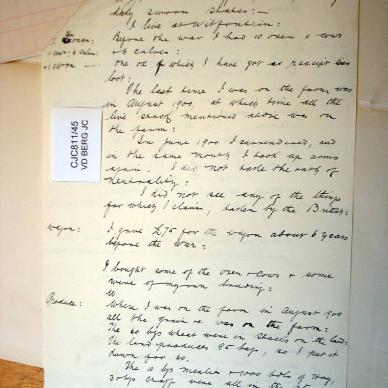 duly sworn states:-
I live at Witfontein:
Before the war I had 10 oxen 11 cows
+ 6 calves:
One ox of which I have got a receipt was
lost:
The last time I was on the farm was
in August 1900, at which time all the
live stock mentioned above was on
the farm:
In June 1900 I surrendered, and
in the same month I took up arms
again. I did not take the oath of
neutrality:
I did not see any of the things
for which I claim, taken by the British:
CJC811/45
VD BERG JC
Wagon:
I gave £75 for the wagon about 6 years
before the war:
I bought some of the oxen + cows + some
were of my own breeding:
Produce:
When I was on the farm in August 1900
all the grain was on the farm:
The 20 bgs wheat were in stacks on the land:
The land produced 95 bags, so I put it
down for 20.
The 10 bgs mealies +